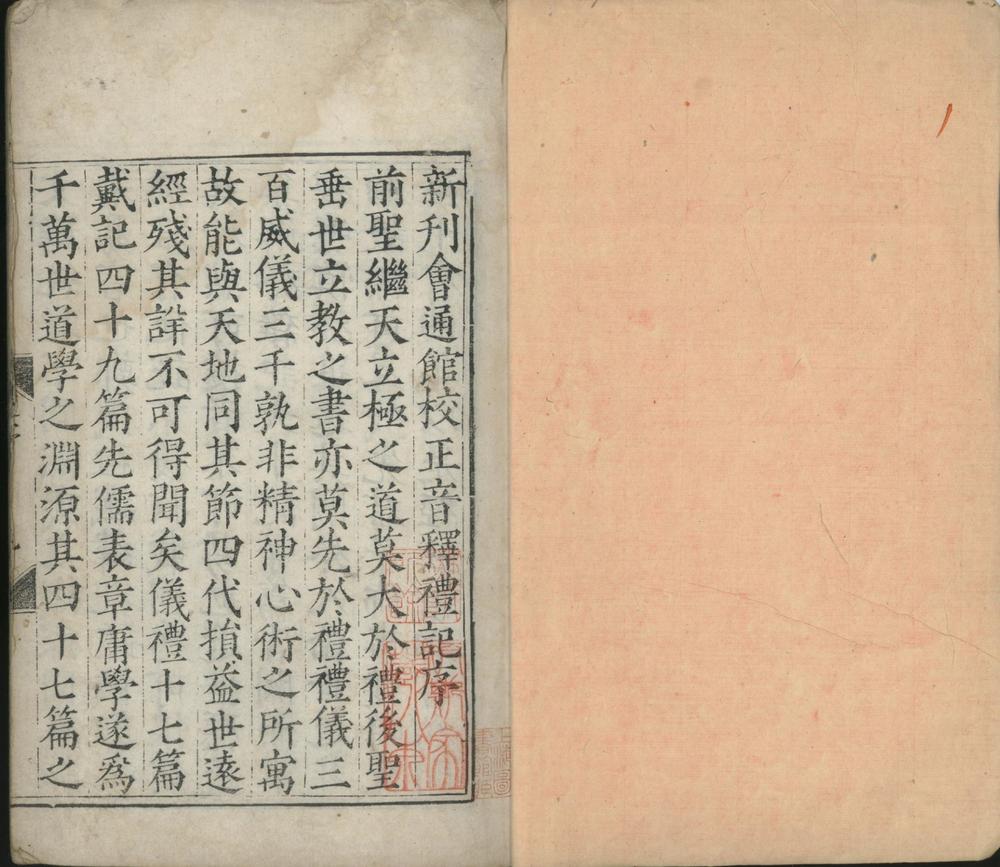 新刋會通館校正音釋禮記序
前聖繼天立極之道莫大於禮後聖
垂世立教之書亦莫先於禮禮儀三
百威儀三千孰非精神心術之所寓
故能與天地同其節四代損益世逺
經殘其詳不可得聞矣儀禮十七篇
戴記四十九篇先儒表章庸學遂爲
千萬世道學之淵源其四十七篇之